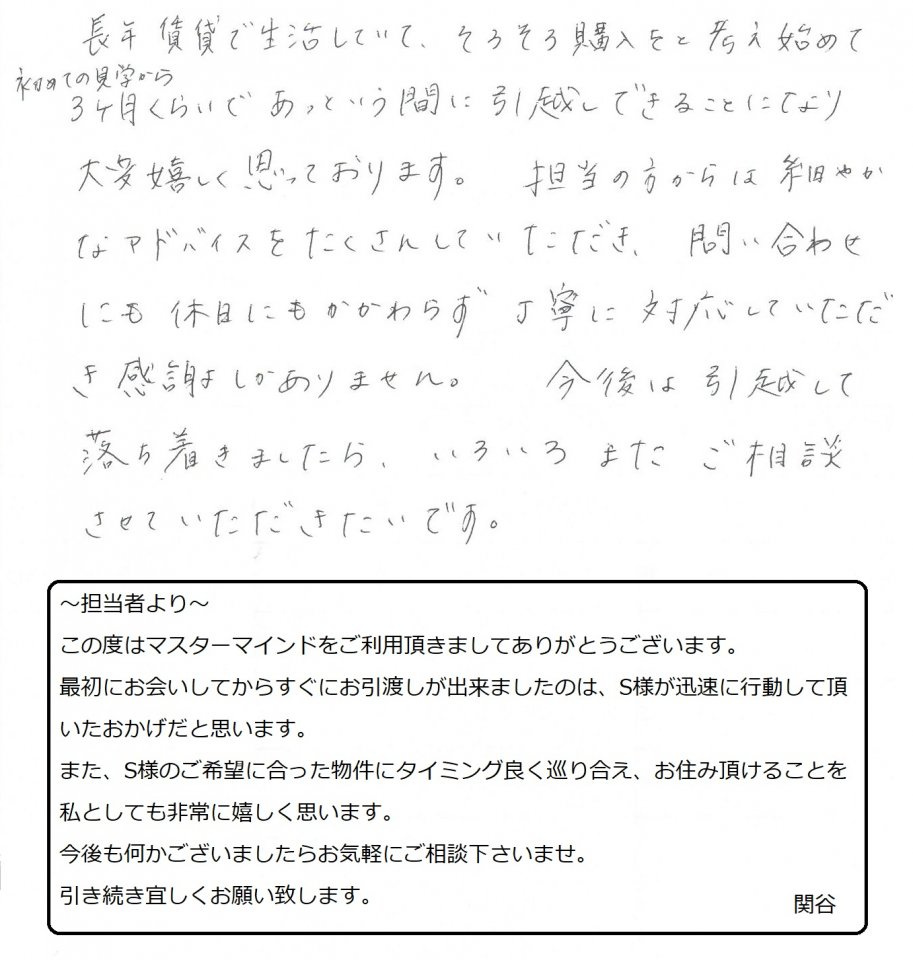 長年賃貸で生活していて、そろそろ購入をと考え始めて
初めての見学から
3ヶ月くらいであっという間に引越しできることになり
大変嬉しく思っております。 担当の方からは細やか
なアドバイスをたくさんしていただき、問い合わせ
にも休日にもかかわらず丁寧に対応していただ
き感謝しかありません。 今後は引越して
落ち着きましたら、いろいろまたご相談
させていただきたいです。
～担当者より～
この度はマスターマインドをご利用頂きましてありがとうございます。
最初にお会いしてからすぐにお引渡しが出来ましたのは、S様が迅速に行動して頂
いたおかげだと思います。
また、S様のご希望に合った物件にタイミング良く巡り合え、お住み頂けることを
私としても非常に嬉しく思います。
今後も何かございましたらお気軽にご相談下さいませ。
引き続き宜しくお願い致します。
関谷